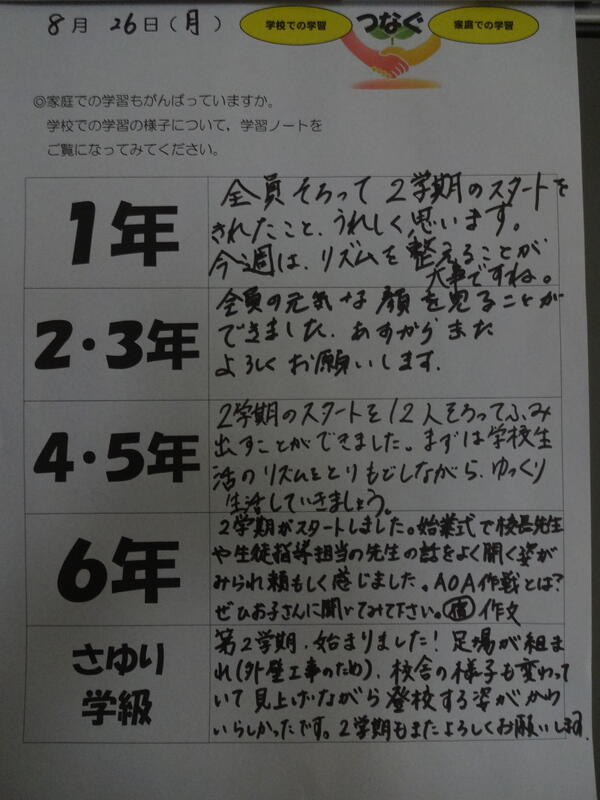 8月 26日(月)
学校での学習 つなぐ 家庭での学習
◎家庭での学習もがんばっていますか。
学校での学習の様子について、学習ノートを
ご覧になってみてください。
1年
全員そろって2学期のスタートを
きれたこと、うれしく思います。
今週は、リズムを整えることが
大事ですね。
2・3年
全員の元気な顔を見ることが
できました。あすからまた
よろしくお願いします。
4・5年
2学期のスタートを12人そろってふみ
出すことができました。まずは学校生
活のリズムをとりもどしながら、ゆっくり
生活していきましょう。
6年
2学期がスタートしました。始業式で校長先生
や生徒指導担当の先生の話をよく聞く姿が
みられ頼もしく感じました。AOA作戦とは?
ぜひお子さんに聞いてみて下さい。 作文
さゆり
学級
第2学期、始まりました!足場が組ま
れ(外壁工事のため)、校舎の様子も変わって
いて見上げながら登校する姿がかわ
いらしかったです。2学期もまたよろしくお願いします。